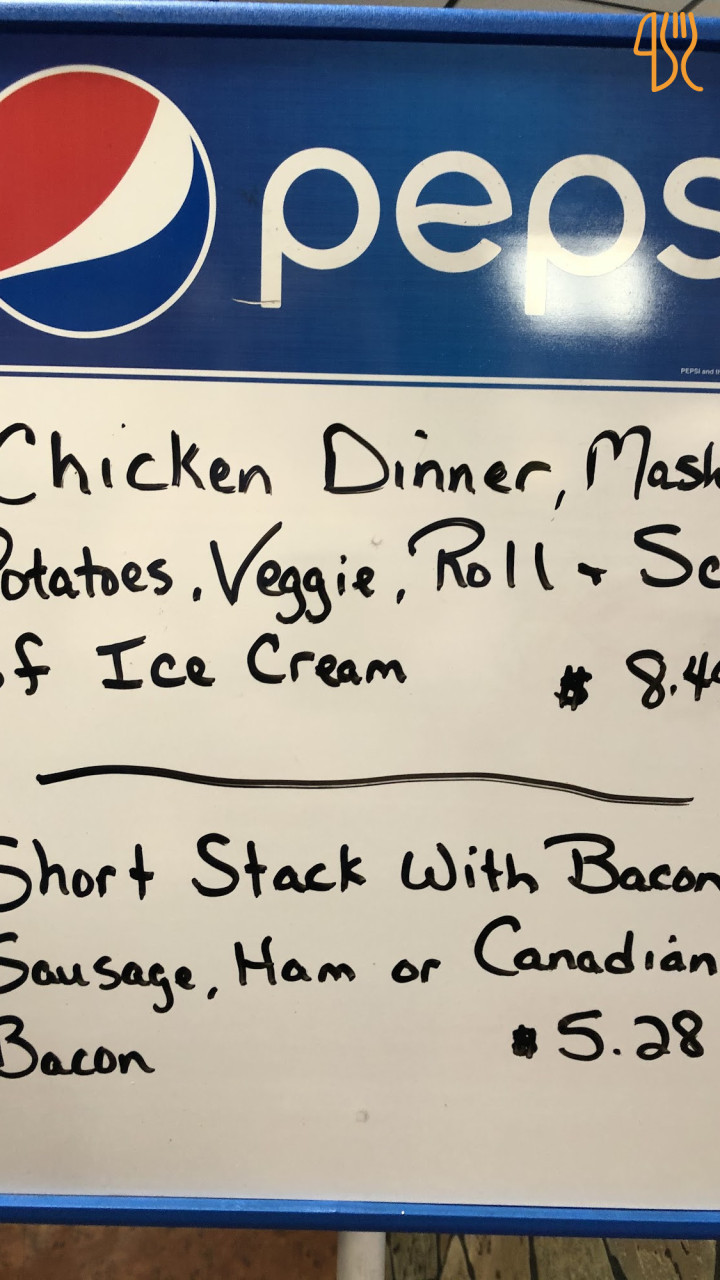 peps
PEPSI and th
Chicken Dinner, Mash
Potatoes, Veggie, Roll + Sc
of Ice Cream $ 8.4
Short Stack With Bacon
Sausage, Ham or Canadian
Bacon $ 5.28